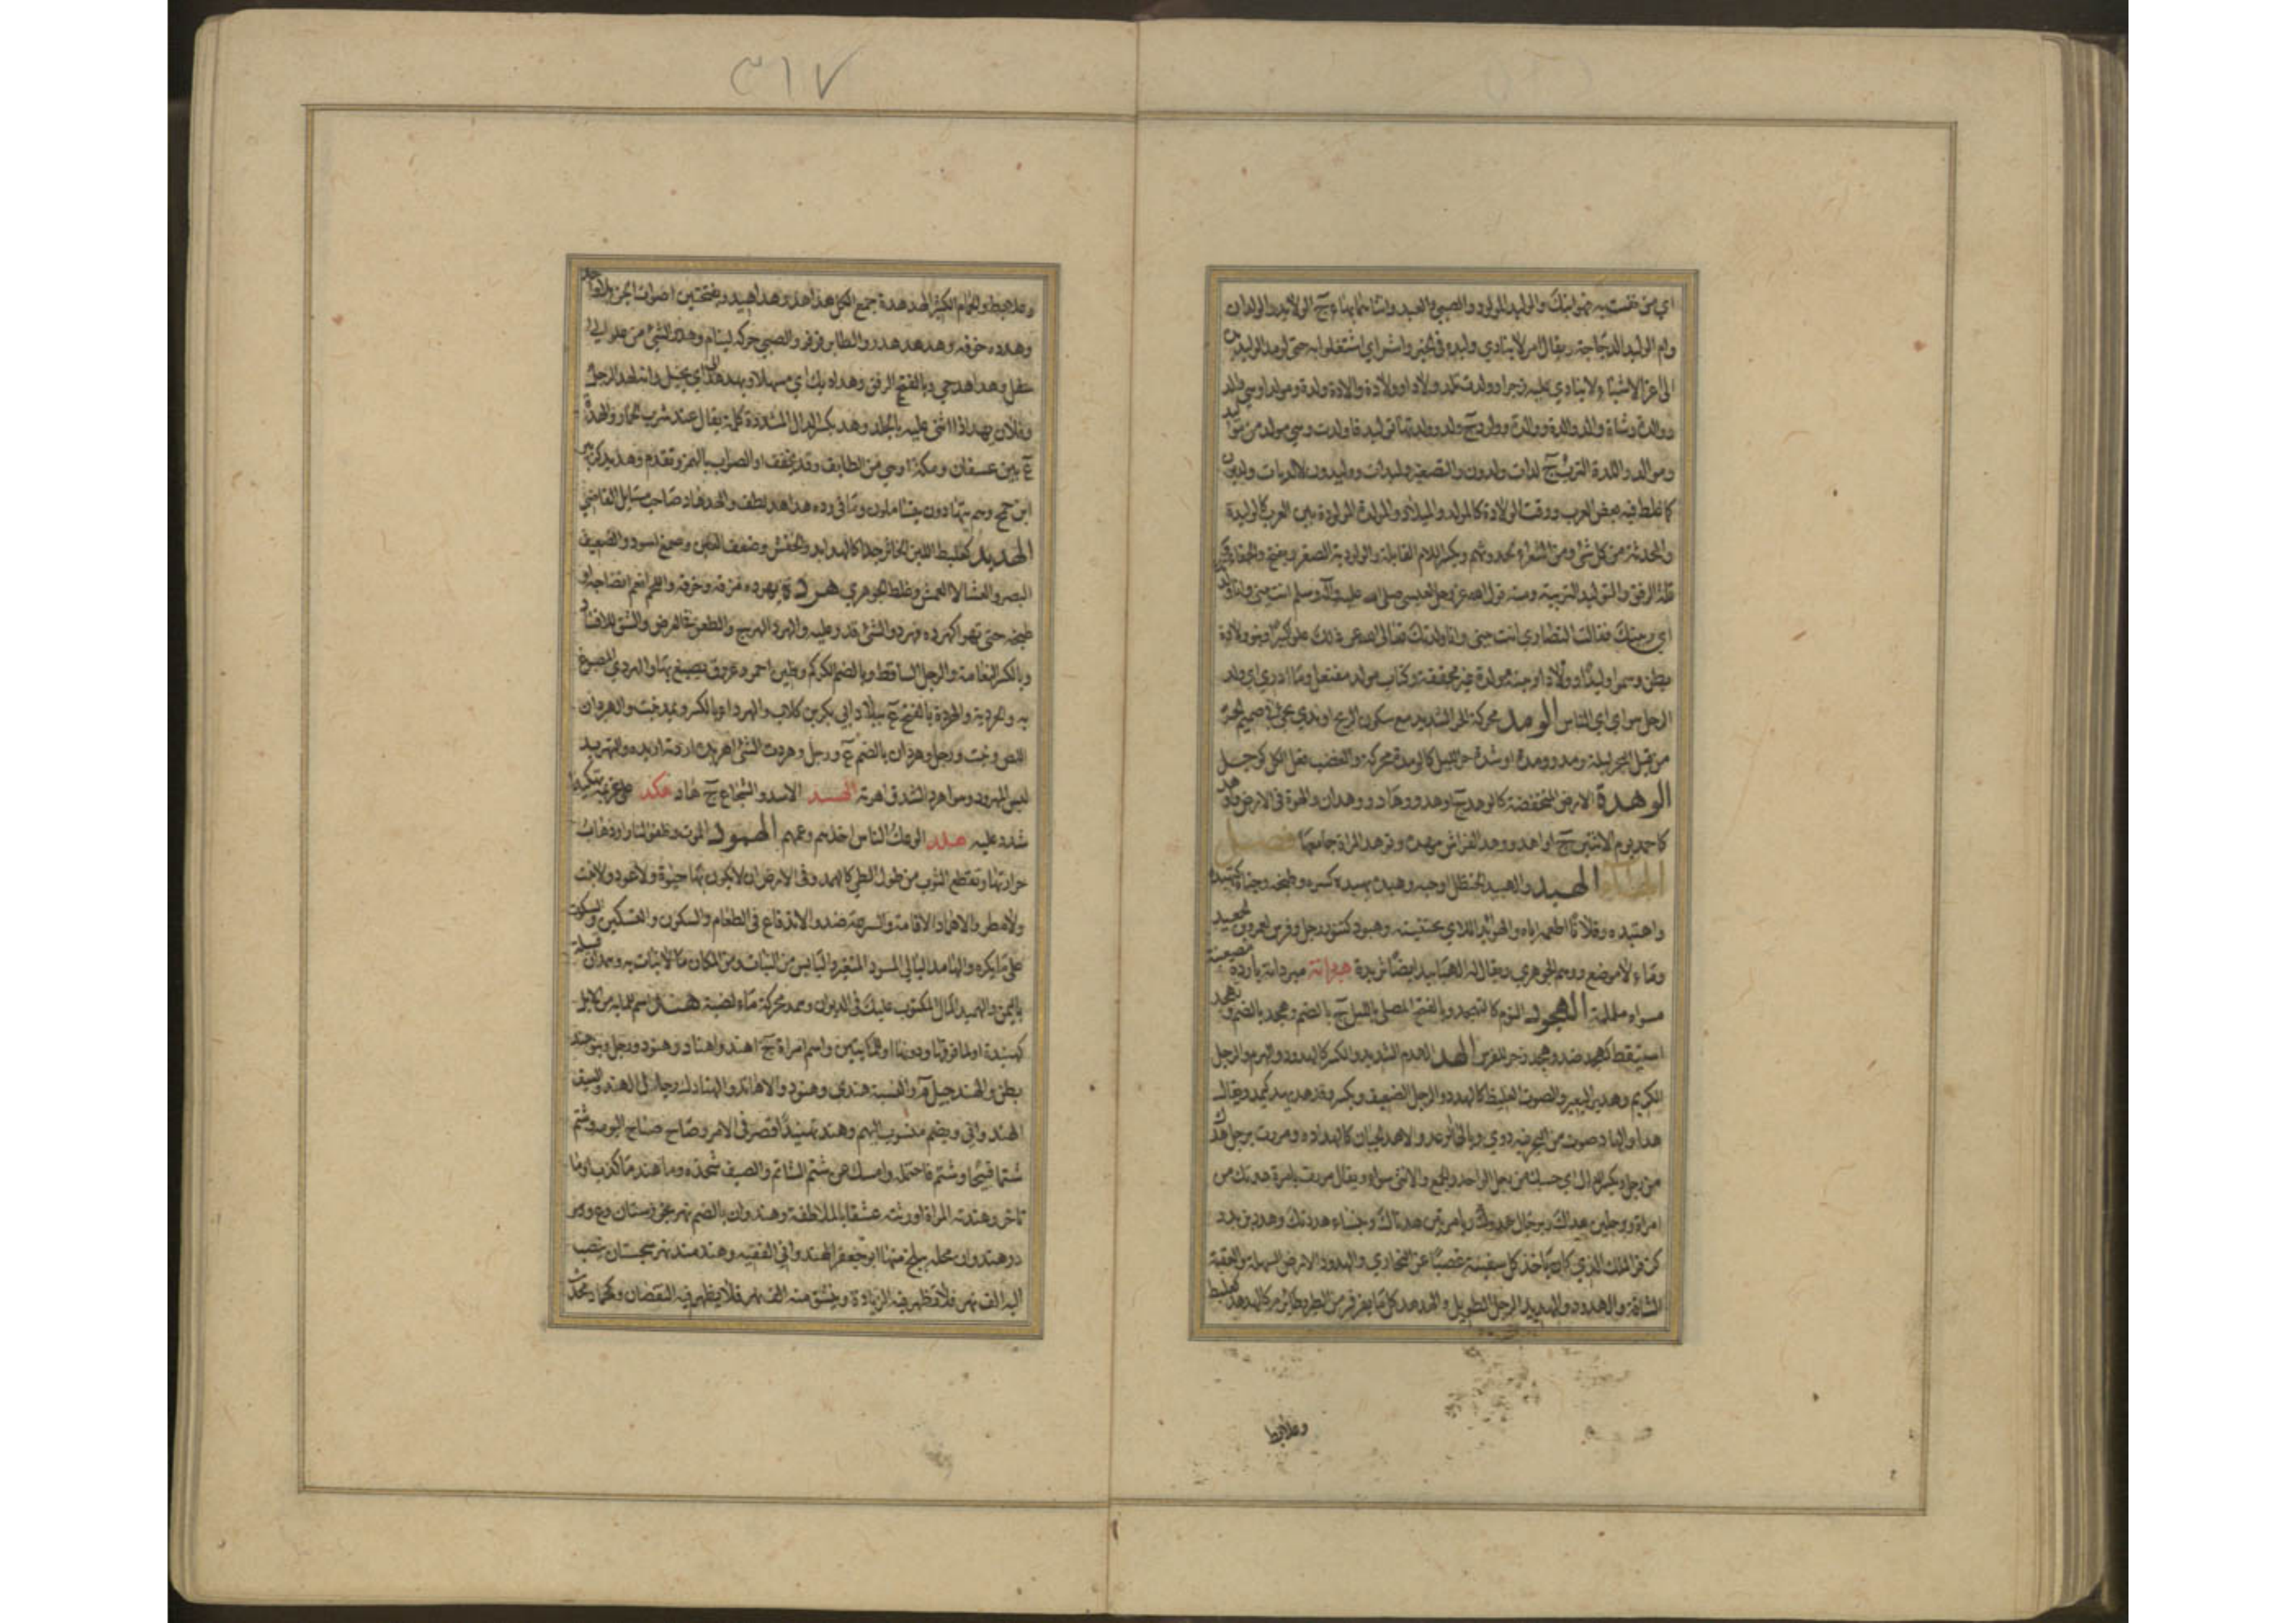 اي من نفست به فهو ابنك والوليد المولود والصبي والعبد وانثاهما بهاء ج الولائد والولدان
وام الوليد الدجاجة ويقال امر لا ينادى وليده في الخير والشر اي اشتغلوا به حتى لو مد الوليد
الى اعز الاشياء لا ينادى عليه زجرا وولدت تلد ولادا وولادة والادة ولدة ومولدا وهي والد
ووالدة وشاة والد والدة وولود ج ولد وولدتها توليدا فاولدت وهي مولد من
ومواليد واللدة الترب ج لدات ولدون والتصغير وليدات ووليدون لا لديات ولديون
كما غلط فيه بعض العرب ووقت الولادة كالمولد والميلاد والمولدة المولودة بين العرب كالوليدة
والمحدثة من كل شئ ومن الشعراء لحدوثهم وبكسر اللام القابلة والولودية الصغر ويفتح والجفاء
قلة الرفق والتوليد التربية ومنه قول الله عز وجل لعيسى صلى الله عليه وآله وسلم انت نبيي وانا
اي ربيتك فقالت النصارى انت بنيي وانا ولدتك تعالى الله عن ذلك علوا كبيرا وبنو ولادة
بطن وسموا وليدا وولادا وبينة مولدة غير محققة وكتاب مولد مفتعل وما ادري اي ولد
الرجل هو اي اي الناس الومد محركة الحر الشديد مع سكون الريح او ندى يجئ في صميم الحر
من قبل البحر ليلة ومد وومدة او شدة حر الليل كالومدة محركة والغضب فعل الكل كوجل
الوهدة الارض المنخفضة كالوهد ج اوهد ووهاد ووهدان والهوة في الارض
كاحمد يوم الاثنين ج اواهد ووهد الفراش مهده وتوهد المراة جامعها فصل
الهاء الهبد والهبيد الحنظل او حبه وهبده يهبده كسره وطبخه وجناه كتهبده
واهتبده وفلانا اطعمه اياه والهوابد اللاي يجتنينه وهبود كتنور رجل وفرس لعمرو بن الجعيد
وماء لا موضع ووهم الجوهري ويقال له الهبابيد ايضا ثريدة هبردانة مبردانة باردة مصعنبة
مسواة ململمة الهجود النوم كالتهجد وبالفتح المصلي بالليل ج بالضم وهجد بالضم وتهجد
استيقظ كهجد ضد وهجد زجر للفرس الهد الهدم الشديد والكسر كالهدود والهرم والرجل
الكريم وهدير البعير والصوت الغليظ كالهدد والرجل الضعيف ويكسر وقد هد يهد كيمد ويقال
هدا والهاد صوت من البحر فيه دوي وبالهاء الرعد والاهد الجبان كالهدادة ومررت برجل هدك
من رجل وبكسر الدال اي حسبك من رجل الواحد والجمع والانثى سواء ويقال مررت بامراة هدتك من
امراة وبرجلين هداك وبرجال هدوك وبامرتين هدتاك وبنساء هددنك وهدد بن بدد
كزفر الملك الذي كان ياخذ كل سفينة غصبا عن البخاري والهدود الارض السهلة والعقبة
الشاقة والهدود والهديد الرجل الطويل والهدهد كل ما يقرقر من الطير وطائر م كالهدهد كعلبط
وعلابط
٣١٧
وعلابط والحمام الكثير الهدهدة جمع الكل هداهد وهداهيد وبفتحتين اصوات الجن بلا واحد
وهدده خوفه وهدهد هدر والطاير قرقر والصبي حركه لينام وهدد الشئ من علو الى
سفل وهداهد حي وبالفتح الرفق وهداديك اي مهلا ويهدهد الي اي يخيل وانه لهد الرجل
وفلان يهد اذا اثني عليه بالجلد وهد بكسر الدال المشددة كلمة يقال عند شرب الحمار والهدة
ع بين عسفان ومكة او هي من الطايف وقد يخفف او الصواب بالهمز وتقدم وهديد كزبير
ابن جمح وهم يتهادون يتساملون وما في وده هداهد لطف والهدهاد صاحب مسايل القاضي
الهدبد كعلبط اللبن الخاثر جدا كالهدابد والخفش وضعف العين وصمغ اسود والضعيف
البصر والعشا لا العمش وغلط الجوهري هرده يهرده مزقه وخرقه واللحم انعم انضاجه او
طبخه حتى تهرا كهرده فهرد والشئ قدر عليه والهرد الهرج والطعن في العرض والشق للافساد
وبالكسر النعامة والرجل الساقط وبالضم الكركم وطين احمر وعروق يصبغ بها والهردي المصبوغ
به وهردية والهردة بالفتح ع ببلاد ابي بكر بن كلاب والهرداء بالكسر ويمد نبت والهردان
اللص ونبت ورجل وهردان بالضم ع ورجل وهردت الشئ اهريده اردته اريده والتهريد
لبس المهرود وهو اهرد الشدق اهرته الهسد الاسد والشجاع ج هساد هكد على غريمه تهكيدا
شدد عليه هلد الوعك الناس اخذهم وعمهم الهمود الموت وطفو النار او ذهاب
حرارتها وتقطع الثوب من طول الطي كالهمد وفي الارض ان لا يكون بها حيوة ولا عود ولا نبت
ولا مطر والاهماد الاقامة والسرعة ضد والاندفاع في الطعام والسكون والتسكين والسكوت
على ما يكره والهامد البالي المسود المتغير واليابس من النبات ومن المكان ما لا نبات به وهمدان قبيلة
باليمن والهميد المال المكتوب عليك في الديوان وهمد محركة ماء لضبة هند اسم للماية من الابل
كهنيدة او لما فوقها ودونها او للمائتين واسم امراة ج اهند واهناد وهنود ورجل وبنو هند
بطن والهند جيل م والنسبة هندي وهنود والاهاند والهنادك رجال الهند والسيف
الهندواني ويضم منسوب اليهم وهند تهنيدا قصر في الامر وصاح صياح البومة وشتم
شتما قبيحا وشتم فاحتمله وامسك عن شتم الشاتم والسيف شحذه وما هند ما كذب او ما
تاخر وهندته المراة اورثته عشقا بالملاطفة وهندوان بالضم نهر بخوزستان وع
درهندوان محلة ببلخ منها ابو جعفر الهندواني الفقيه وهندمند نهر بسجستان ينصب
اليه الف نهر فلا تظهر فيه الزيادة وينشق منه الف نهر فلا يظهر فيه النقصان وكحماد محدث